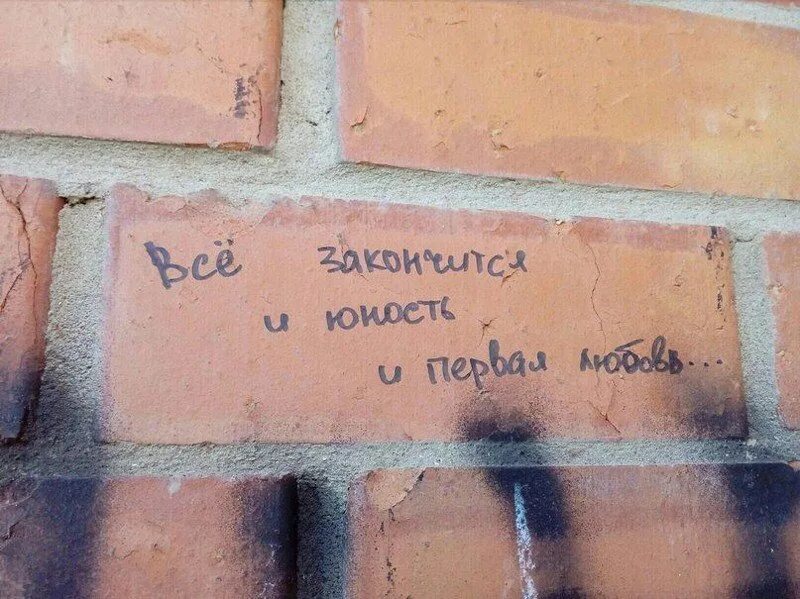 Всё закончится
и юность
и первая любовь...